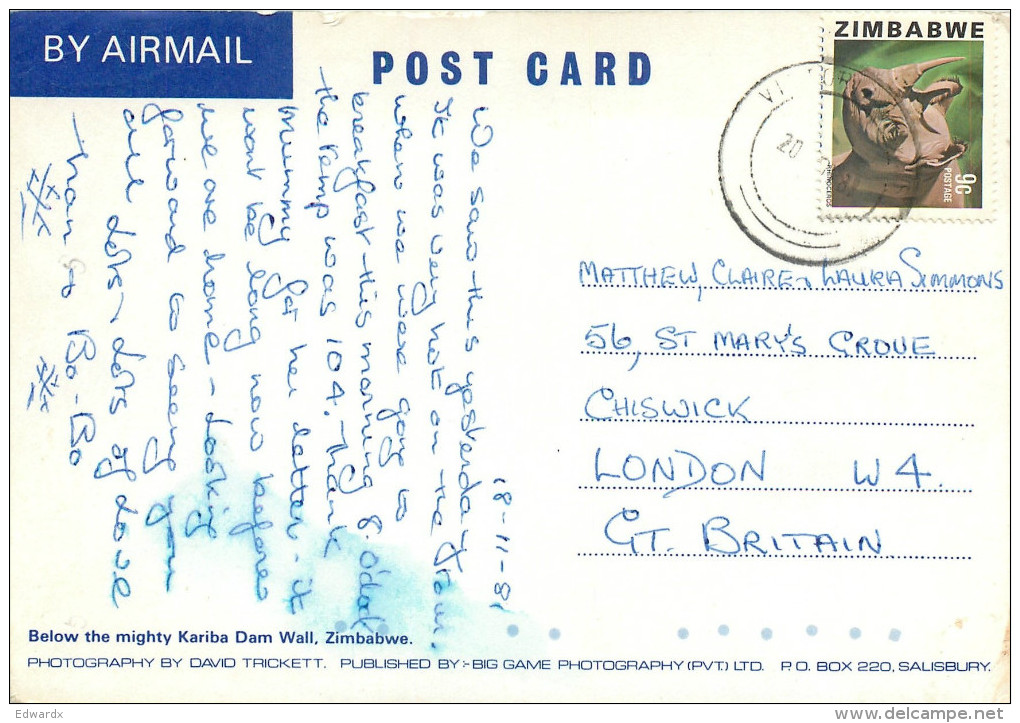 BY AIRMAIL
POST CARD
ZIMBABWE
POSTAGE
9c
20
18-11-81
We saw this yesterday.
It was very hot on the
when we were going to
breakfast this morning 8.0'clock
the temp was 104. Thank
Mummy for her letter - it
wont be long now before
we are home - looking
forward to seeing you
all lots - lots of love
Nan & Bo-Bo
xxx
xxx
MATTHEW, CLAIRE & LAURA SIMMONS
56, ST MARY'S GROVE
CHISWICK
LONDON W4.
GT. BRITAIN
Below the mighty Kariba Dam Wall, Zimbabwe.
PHOTOGRAPHY BY DAVID TRICKETT. PUBLISHED BY:-BIG GAME PHOTOGRAPHY (PVT.) LTD. P.O. BOX 220, SALISBURY.
Edwardx
delcampe.net